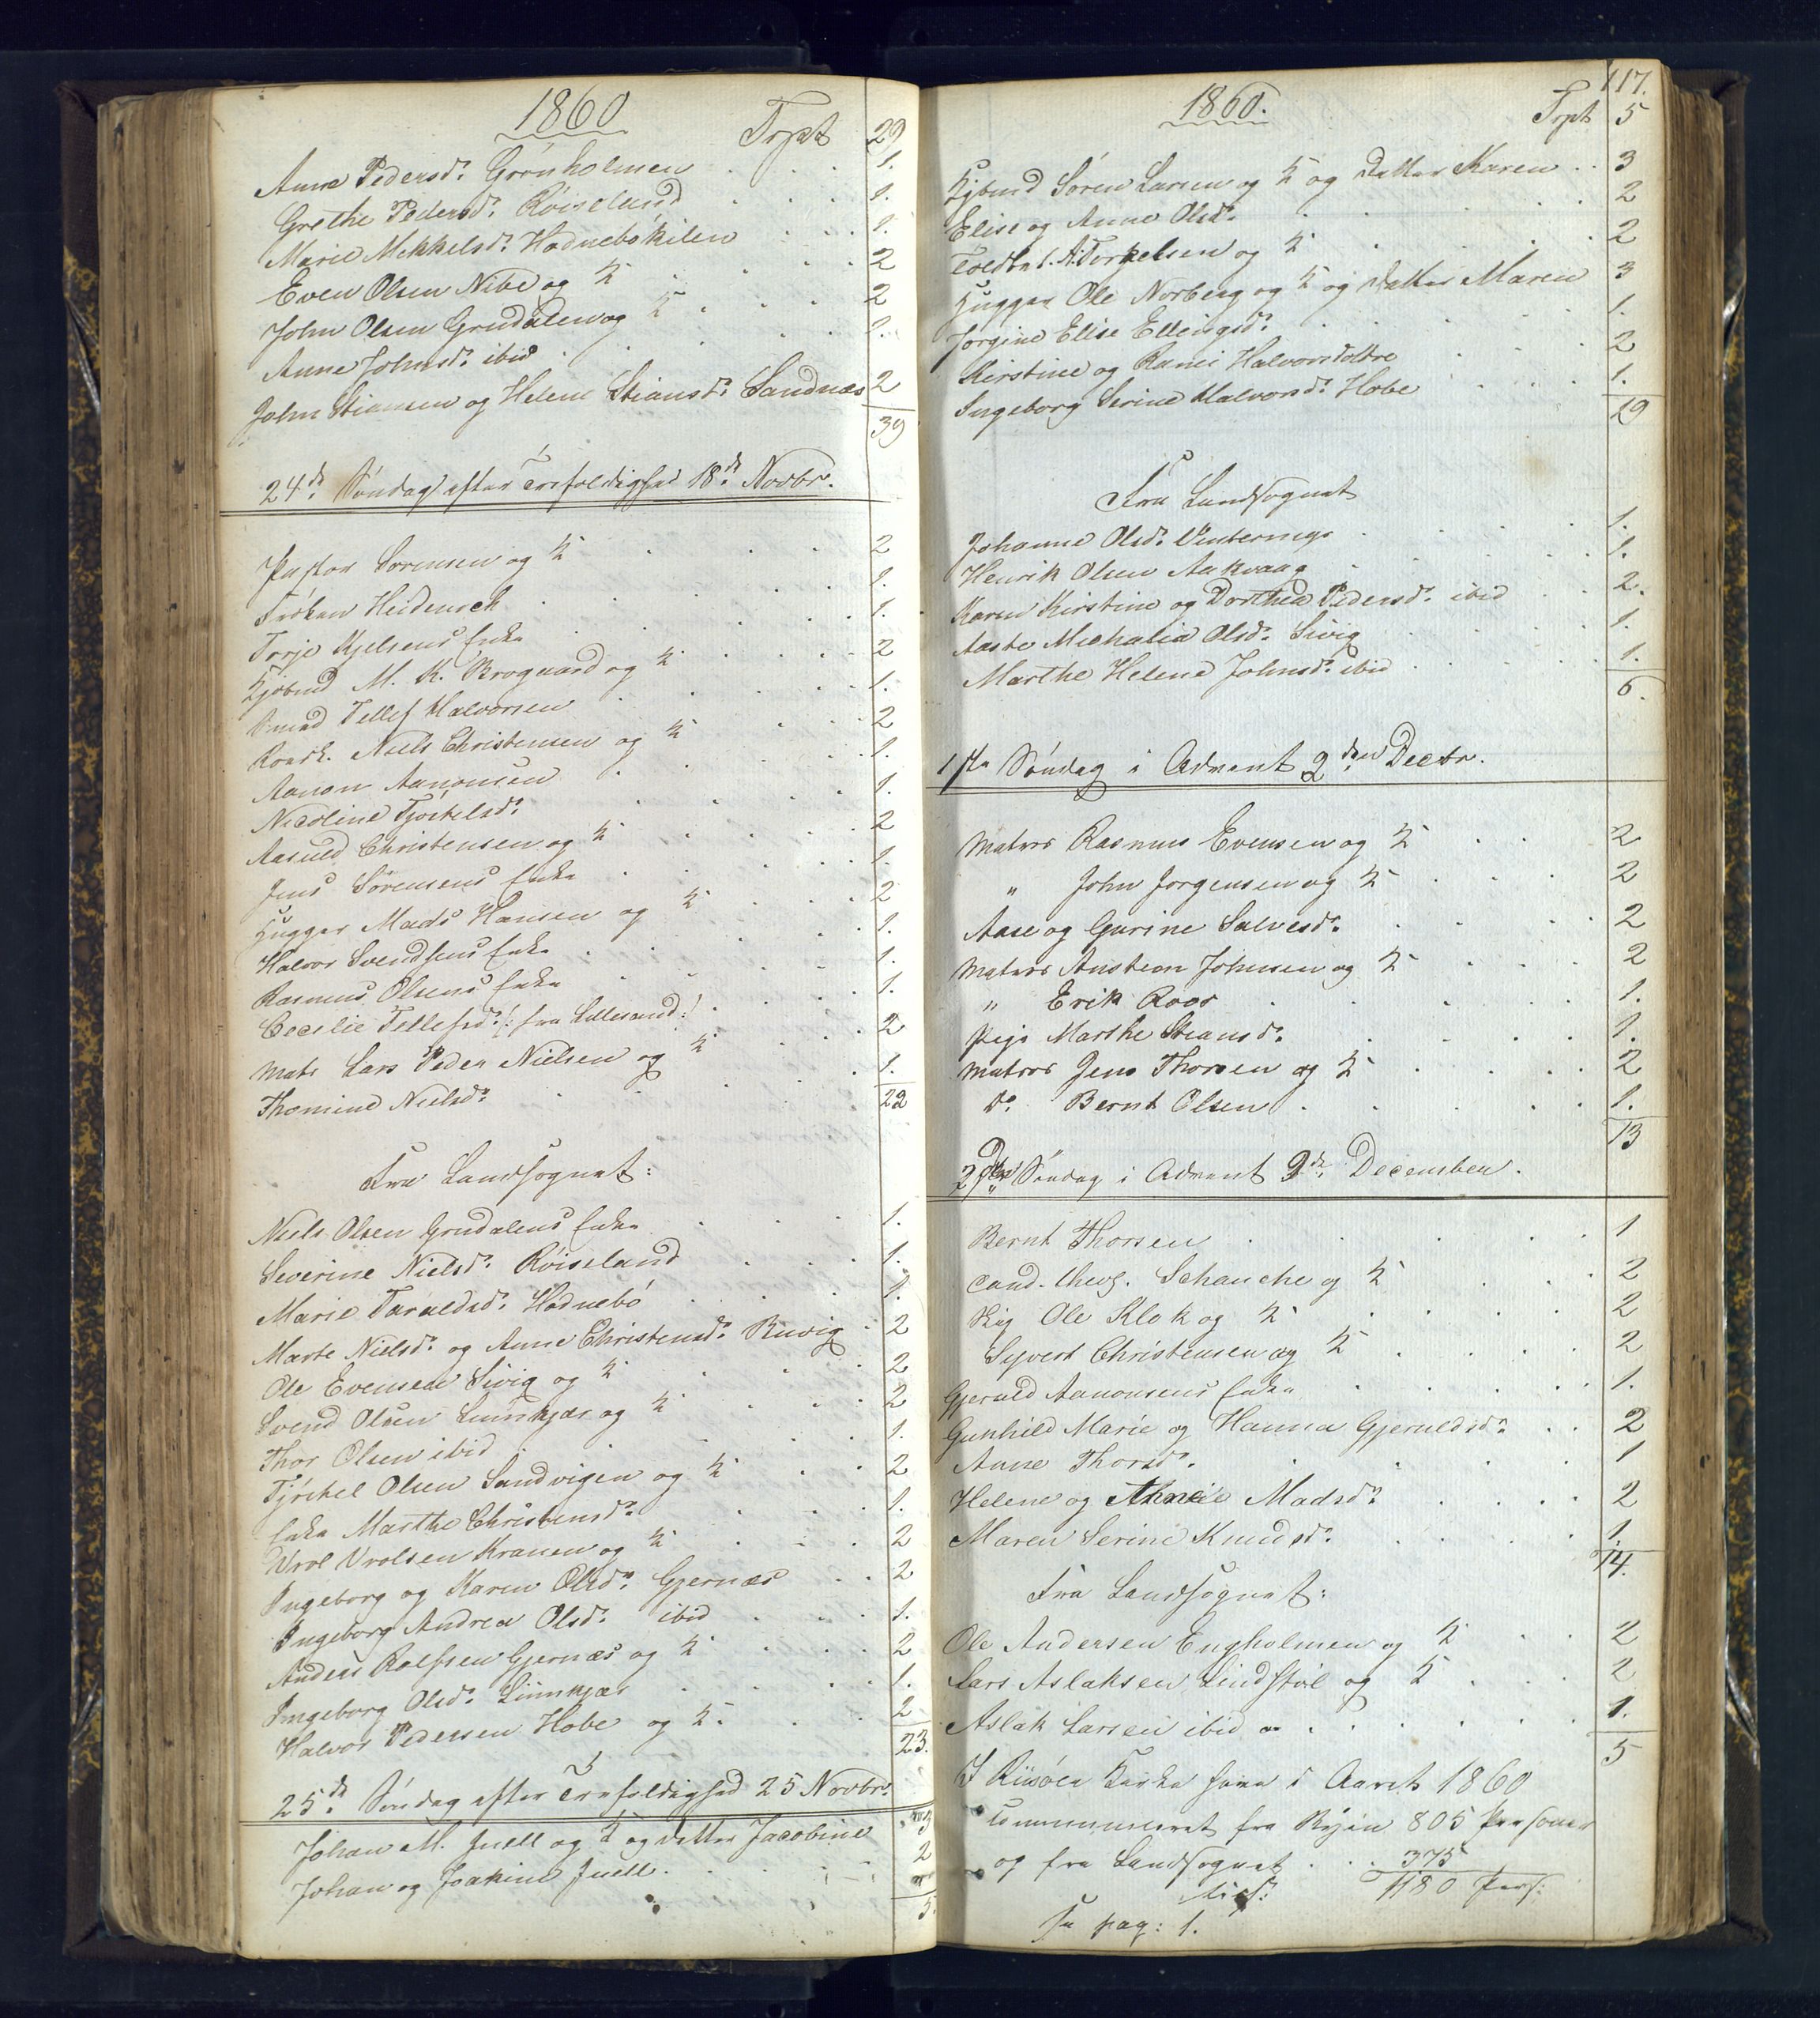 1860
Trpt 29
Anne Pedersd. Grønholmen 1.
Grethe Pedersd. Røiseland 1.
Marie Mekkelsd. Hødnebøkilen 1.
Even Olsen Nibe og K 2
John Olsen Grudalen og K 2
Anne Johnsd. ibid 1.
John Stiansen og Helene Stiansd. Sandnæs 2
39
24de Søndag efter Trefoldighed 18de Novbr.
Pastor Sørensen og K 2
Frøken Heidenreich 1.
Terje Kjelsens Enke 1.
Kjøbmd M. K. Brogaard og K 2
Smed Tellef Halvorsen 1.
Niels Christensen og K 2
Aanon Aanonsen 1.
Nicoline Tjøstelsd. 1.
Aasuld Christensen og K 2
Jens Sørensens Enke 1.
Hugger Mads Hansen og K 2
Halvor Svendsens Enke 1.
Rasmus Olsens Enke 1.
Cecilie Tellefsd. /: fra Lillesand :/ 1.
Matr Lars Peder Nielsen og K 2
Thomine Nielsd. 1.
22
Fra Landsognet:
Niels Olsen Grudalens Enke 1.
Severine Nielsd. Røiseland 1.
Marie Taraldsd. Hødnebø 1.
Marte Nielsd. og Anne Christensd. Buvig 2
Ole Evensen Sivig og K 2
Svend Olsen Linnkjær og K 2
Thor Olsen ibid 1.
Tjøstel Olsen Sandvigen og K 2
Enke Marthe Christensd. 1.
Vrol Vrolsen Kranen og K 2
Ingeborg og Karen Olsd. Gjernæs 2
Ingeborg Andrea Olsd. ibid 1.
Anders Rolfsen Gjernæs og K 2
Ingeborg Olsd. Linnkjær 1.
Halvor Pedersen Hobe og K. 2
23.
25de Søndag efter Trefoldighed 25 Novbr.
Johan M. Juell og K og Datter Jacobine 3
Johan og Joakine Juell 2
5.
117.
1860.
Trpt 5
Kjøbmd Søren Larsen og K og Datter Karen 3
Elise og Anne Olsd. 2
Toldbet. A. Torkelsen og K 2
Hugger Ole Norberg og K og Datter Maren 3
Jørgine Elise Ellingsd. 1.
Kirstine og Halvorsdøttre 2
Ingeborg Serine Halvorsd. Hobe 1.
19
Fra Landsognet
Johanne Olsd. 1.
Henrik Olsen Aakvaag 1.
Karen Kirstine og Dorthea Pedersd. ibid 2.
Aaste Michalia Olsd. Sivig 1.
Marthe Helene Johnsd. ibid 1.
6.
1ste Søndag i Advent 2den Decbr.
Matros Rasmus Evensen og K 2
" John Jørgensen og K 2
Aase og Gurine Salvesd. 2
Matros Anstein Johnsen og K 2
" Erik Roos 1.
Pige Marthe Stiansd. 1.
Matros Jens Thorsen og K 2
Do. Bernt Olsen 1.
13
2den Søndag i Advent 9de December.
Bernt Thorsen 1
cand. theol. Schanche og K 2
Ole Klok og K 2
Syvert Christensen og K 2
Gjeruld Aanonsens Enke 1.
Gunhild Marie og Hanna Gjeruldsd. 2
Anne Thorsd. 1
Helene og Madsd. 2
Maren Serine Knudsd. 1.
14.
Fra Landsognet:
Ole Andersen Engholmen og K 2
Lars Aslaksen Lindstøl og K 2
Aslak Larsen ibid 1.
5
I Riisøer Kirke have i Aaret 1860
communiceret fra Byen 805 Personer
og fra Landsognet 375
1180 Pers:
pag: 1.